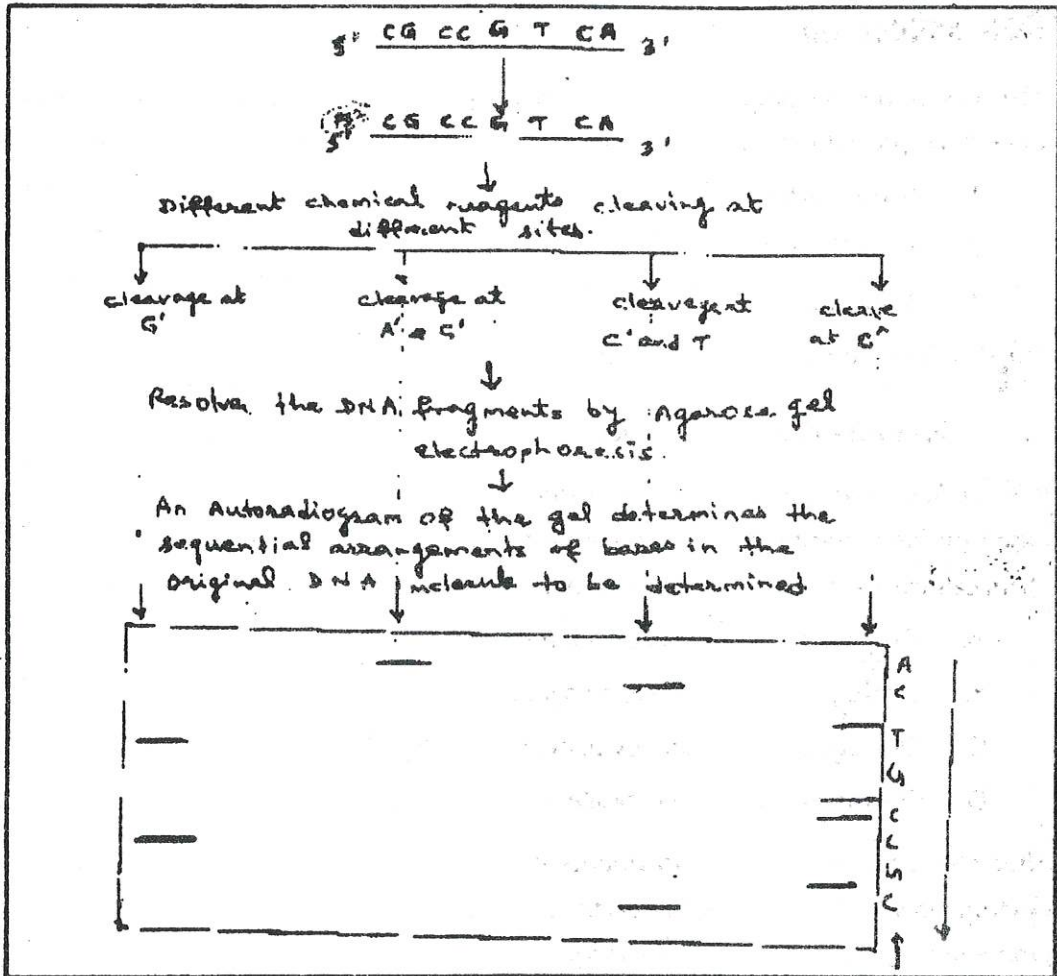 5' CG CC G T CA 3'
5' CG CC G T CA 3'
Different chemical reagents cleaving at
different sites.
cleavage at
G'
cleavage at
A' G'
cleavage at
C' and T
cleave
at C
Resolve the DNA fragments by Agarose gel
electrophoresis.
An Autoradiogram of the gel determines the
sequential arrangements of bases in the
original DNA molecule to be determined
A
C
T
G
C
C
G
C